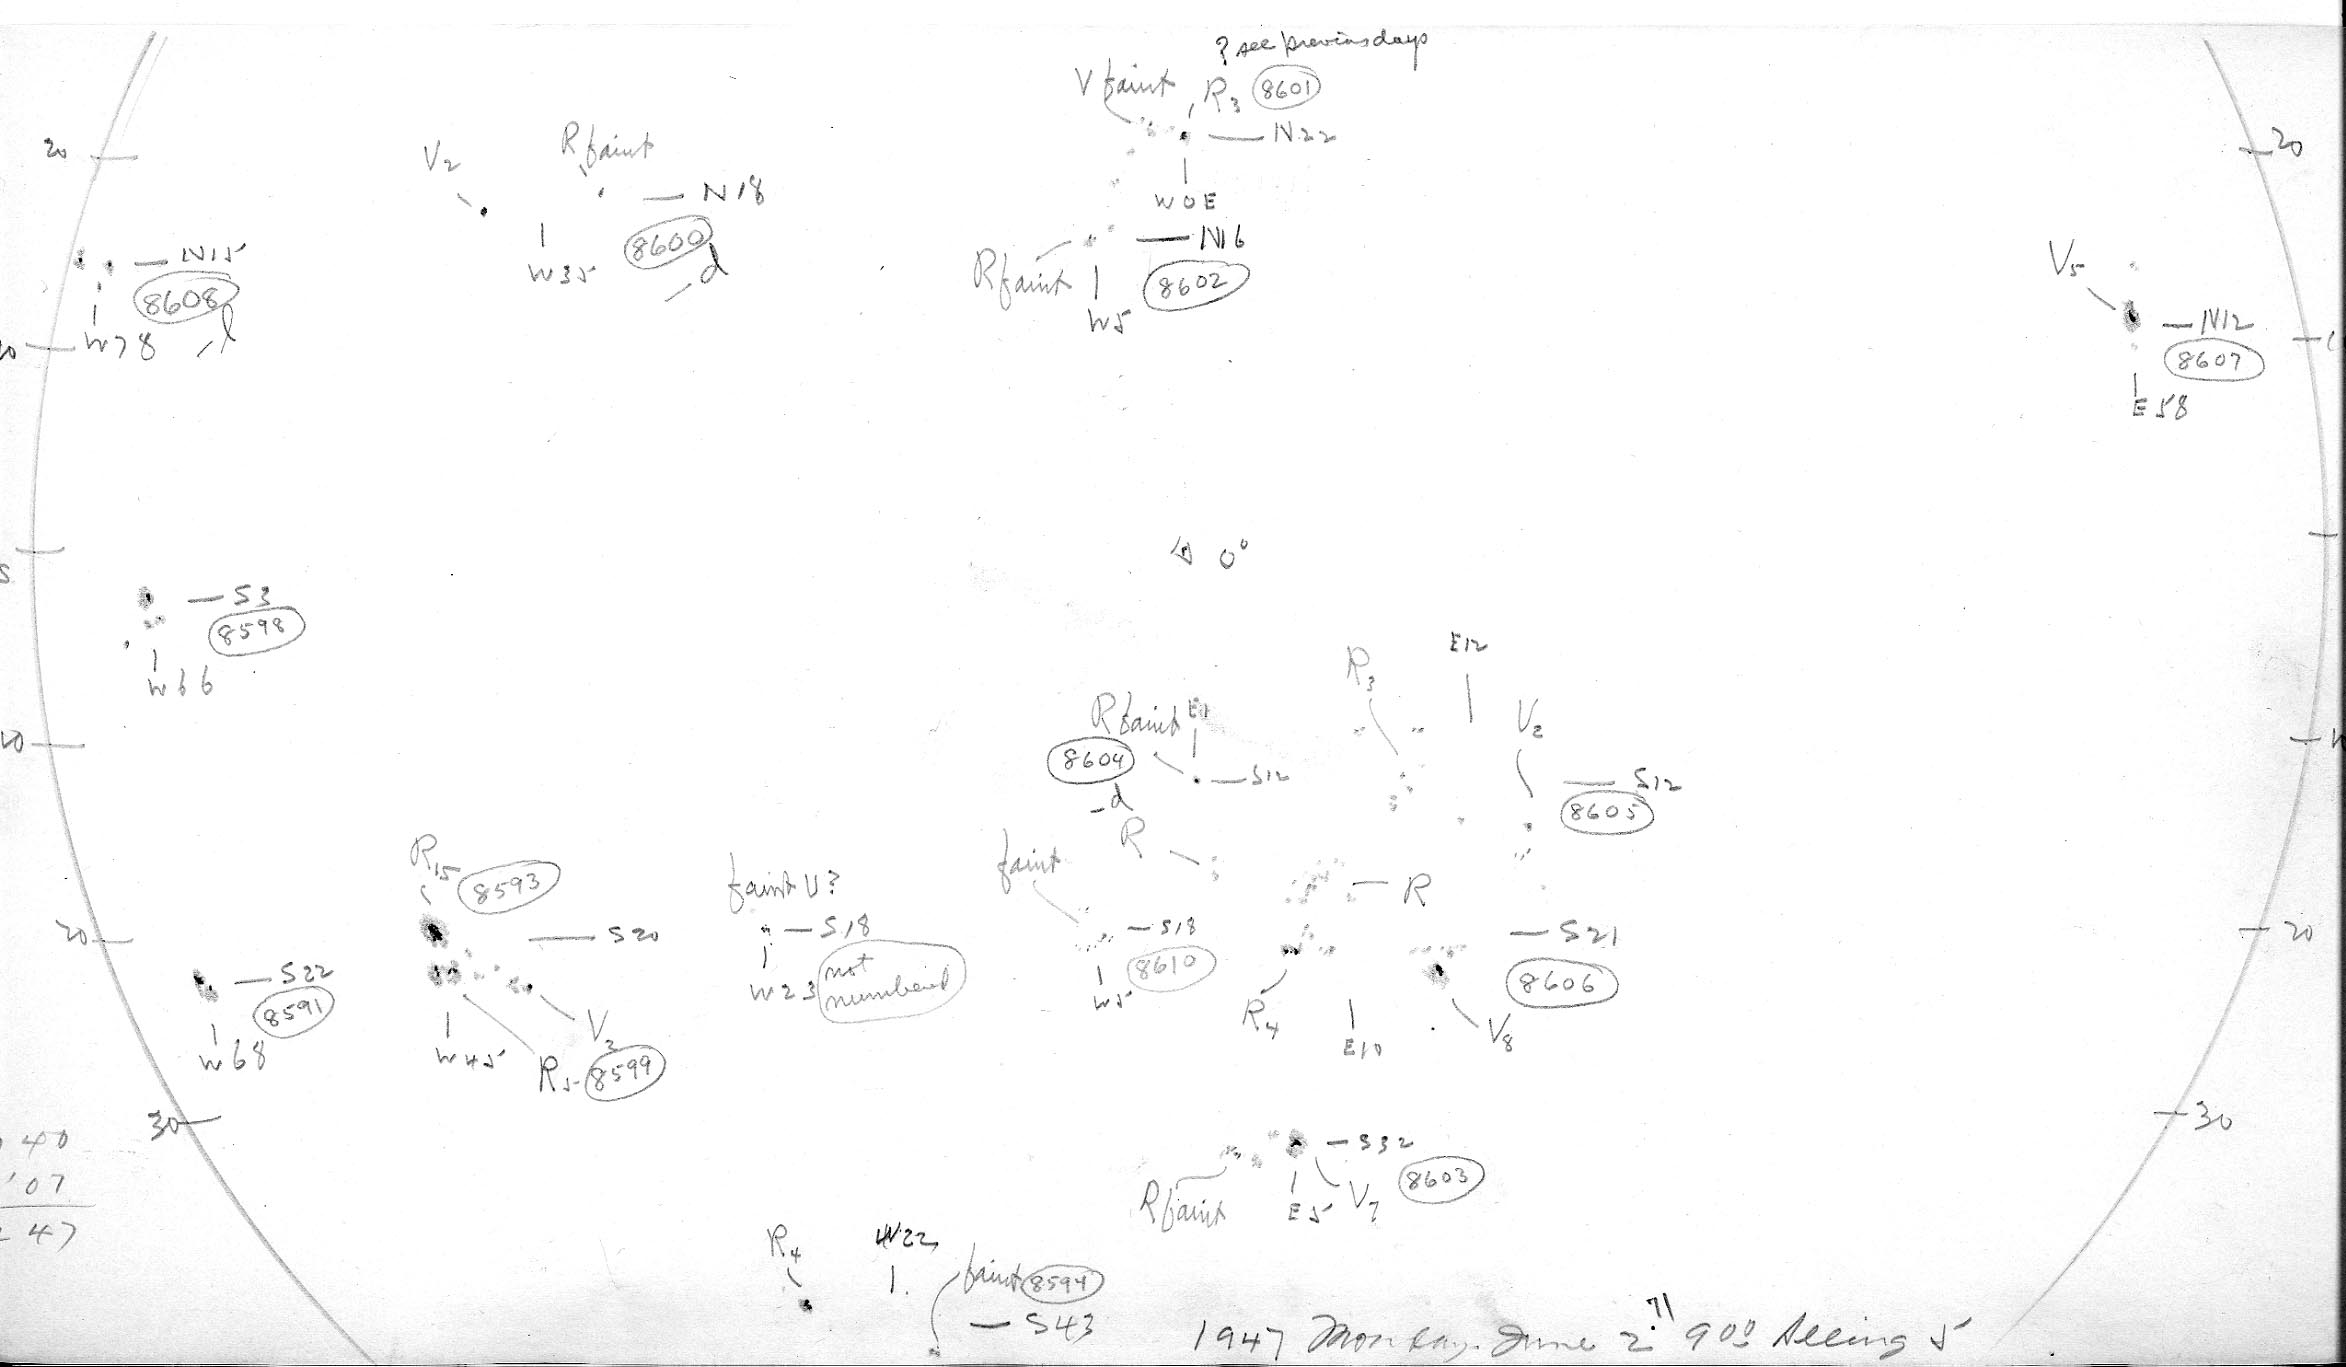 ? see previous days
V faint R3 8601
N22
W 0 E
20
V2
R faint
N18
8600
W35
d
N16
R faint
8602
W5
20
N15
8608
W78 l
V5
N12
8607
E58
0°
S3
8598
W66
E12
R3
R faint E1
V2
8604
S12
d
S12
8605
10
R
R15
8593
faint V?
faint
R
20
S20
S18
W23
not numbered
S18
8610
W5
S21
8606
20
S22
8591
W68
W45
V3
R5 8599
R4
E10
V8
30
30
40
07
47
S32
8603
R faint
E5 V7
R4
W22
faint 8594
S43
1947 Monday. June 2.71 900 Seeing 5